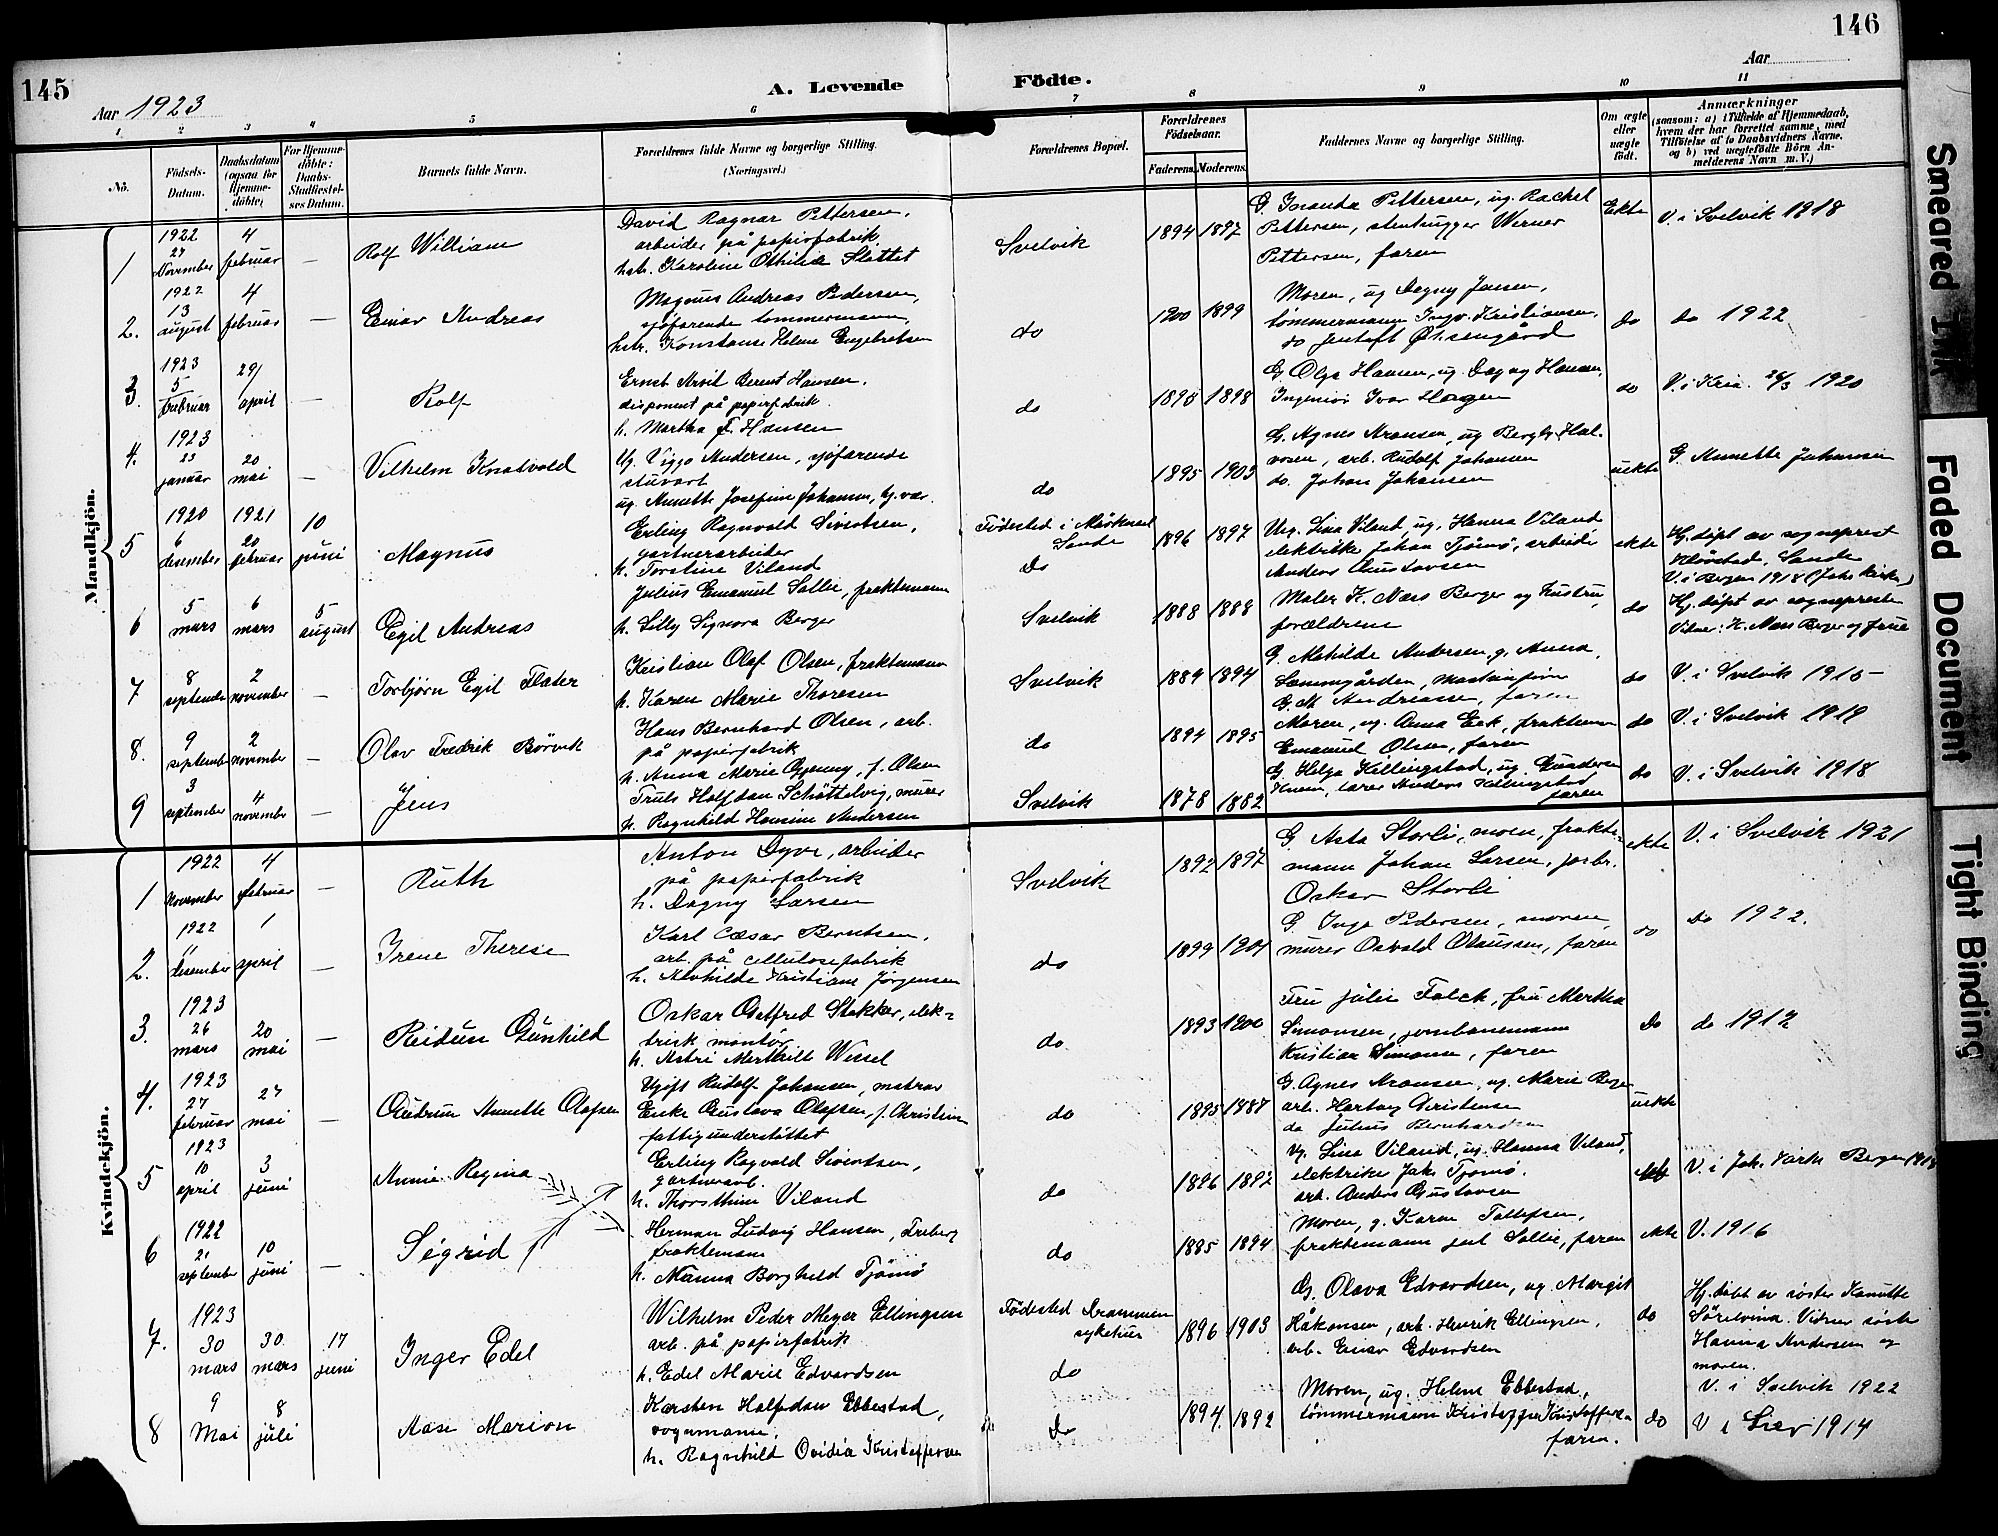 145
146
Aar 1923
A. Levende
Födte.
Aar
1
2
3
4
5
6
7
8
9
10
11
No.
Födsels-
Datum.
Daabsdatum
(ogsaa for
Hjemme-
döbte)
For Hjemme-
döbte:
Daabs-
Stadfæstel-
ses Datum.
Barnets fulde Navn.
Forældrenes fulde Navne og borgerlige Stilling.
(Næringsvei.)
Forældrenes Bopæl.
Forældrenes
Födselsaar.
Faderens.
Moderens.
Faddernes Navne og borgerlige Stilling.
Om ægte
eller
uægte
födt.
Anmærkninger
(saasom: a) i Tilfælde af Hjemmedaab,
hvem der har forrettet samme, med
Tilföielse af to Daabsvidners Navne,
og b) ved uægtefödte Börn An-
melderens Navn m. V.)
Mandkjön.
1
1922
27
November
4
februar
—
Rolf William
David Ragnar Pettersen,
arbeider på papirfabrik
hstr. Karoline Othilde Slottet
Svelvik
1894
1897
G. Jaranda Pettersen, ug. Rachel
Pettersen, stenhugger Werner
Pettersen, faren
Ekte
V. i Svelvik 1918
2.
1922
13
august
4
februar
—
Einar Andreas
Magnus Andreas Pedersen,
sjöfarende tømmermann
hstr. Konstanse Helene Engebretsen
do
1900
1899
Moren, ug Dagny Jansen,
tömmermann Ingv. Kristiansen,
do
do 1922
3.
1923
5
februar
29/
april
—
Rolf
Ernst Arvil Bernt Hansen,
disponent på papirfabrik.
h. Martha F. Hansen
do
1898
G. Olga Hansen, ug. Dagny Hansen,
Ingeniör Ivar Hagen
do
V. i Kria. 26/3 1920
4.
1923
23
januar
20
mai
—
Vilhelm Knatvold
Ug. Viggo Andersen, sjöfarende
stuvert
ug. Annette Josefine Johansen, hj. vær.
do
1895
1903
G. Agnes Aronsen, ug Bergly Hal-
vorsen, arb. Rudolf Johansen
do. Johan Johansen
uekte
G. Annette Johansen
5
1920
6
desember
1921
20
februar
10
juni
Magnus
Erling Ragnvald Sivertsen,
gartnerarbeider
h. Torstine Viland
Födested i
Sande
Do
1896
1897
Ug. Lina Viland ug. Hanna Viland
elektrike Johan Tjömö, arbeide
Anders Gustavsen
ekte
Hj. döpt av sogneprest
Klövstad, Sande
V. i Bergen 1918 (Johs kirke)
6
5
mars
6
mars
5
august
Egil Andreas
Julius Emanuel Sollie, fraktemann
h. Lilly Signora Berger
Svelvik
1888
1888
Maler K. Nars Berger og hustru,
forældrene
do
Hj. döpt av sogneprestn
Vitner: K. Nars Berger og frue
7
8
september
2
november
—
Torbjørn Egil Flater
Kristian Olaf Olsen, fraktemann
h. Karen Marie Thoresen
Svelvik
1889
1894
G. Mathilde Andersen, g. Anna
faren
do
V. i Svelvik 1915 -
8.
9
september
2
november
—
Olav Fredrik Börvik
Hans Bernhard Olsen, arb.
på papirfabrik
h. Anna Marie
do
1894
1895
Moren, ug. Anna Eek, fraktemann
Emanuel Olsen, faren
do
V. i Svelvik 1919
9
3
september
4
november
—
Jens
Truls Halfdan Schöttelvig, murer
h. Ragnhild Hansine Andersen
Svelvik
1878
1882
G. Helga Killingstad, ug Gundersen
lærer Anders Killingstad
faren
do
V. i Svelvik 1918
Kvindekjön.
1
1922
November
4
februar
—
Ruth
Anton Dyve, arbeider
på papirfabrik
h. Dagny Larsen
Svelvik
1892
1897
G. Asta Storli, moren, frakte-
mann Johan Larsen, jorbr.
Oskar Storli
ekte
V. i Svelvik 1921
2.
1922
11
desember
1
april
—
Irene Therese
Karl Cæsar Berntsen,
arb. på cellulosefabrik
h. Alvhilde Kristiane Jørgensen
do
1899
1901
G. Inga Pedersen, moren,
murer Osvald Olaussen, faren
do
Do 1922.
3.
1923
26
mars
20
mai
—
Reidun Gunhild
Oskar Gotfred Stokker, elek-
trisk montör
h. Astri Merthilt Wessel
do
1893
1900
Fru Julie Falck, fru Mertha
Simonsen, jernbanemann
Kristian Simonsen, faren
Do
do 1917
4.
1923
27
februar
27
mai
—
Gudrun Annette Olafsen
Ugift Rudolf Johansen, matros
Enke Gustava Olafsen, f. Christian
fattigunderstöttet
do
1895
1887
G. Agnes Aronsen, ug. Marie Berger
arb. Hartvig Kristensen
do Julius Bernhardsen
uekte
5
1923
10
april
3
juni
Annie Regina
Erling Ragvald Sivertsen,
gartnerarb.
h. Thorsthine Viland
do
1896
1897
Ug. Lina Viland, ug. Hanna Viland,
elektriker Joh. Tjömö.
arb. Anders Gustavsen
ekte
V. i Joh. kirk Bergen 1918
6
1922
21
september
10
juni
—
Sigrid
Herman Ludvig Hansen, Freberg
fraktemann
h. Nanna Borghild Tjömö
do
1885
1894
Moren, g. Karen Tollefsen,
fraktemann Jul Sollie, faren
ekte
V. 1916
7.
1923
30
mars
30
mars
17
juni
Inger Edel
Wilhelm Peder Meyer Ellingsen
arb. på papirfabrik
h. Edel Marie Edvardsen
Födested Drammen
sykehus
do
1896
1903
G. Olava Edvardsen, ug. Margit
Håkonsen, arb. Henrik Ellingsen,
arb. Einar Edvardsen
do
Hj. döbt av söster Kanutte
Sörelvina. Vidner söster
Hanna Andersen og
moren.
V. i Svelvik 1922
8
9
Mai
8
juli
Aase Marion
Karsten Halfdan Ebbestad,
vognmann.
h. Ragnhild Ovidia Kristoffersen
Do
1894.
1892
Moren, ug. Helene Ebbestad,
tömmermann Kristoffer Kristoffersen
faren.
do
V i Lier 1914
Smeared Ink
Faded Document
Tight Binding